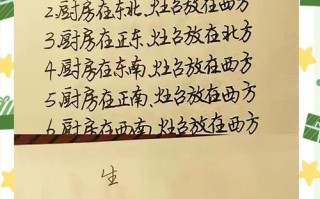 2.厨房在东北、灶台放在西方
3.厨房在正东、灶台放在北方
4.厨房在东南、灶台放在西方
5.厨房在正南、灶台放在西方
6.厨房在西南、灶台放在西方
生